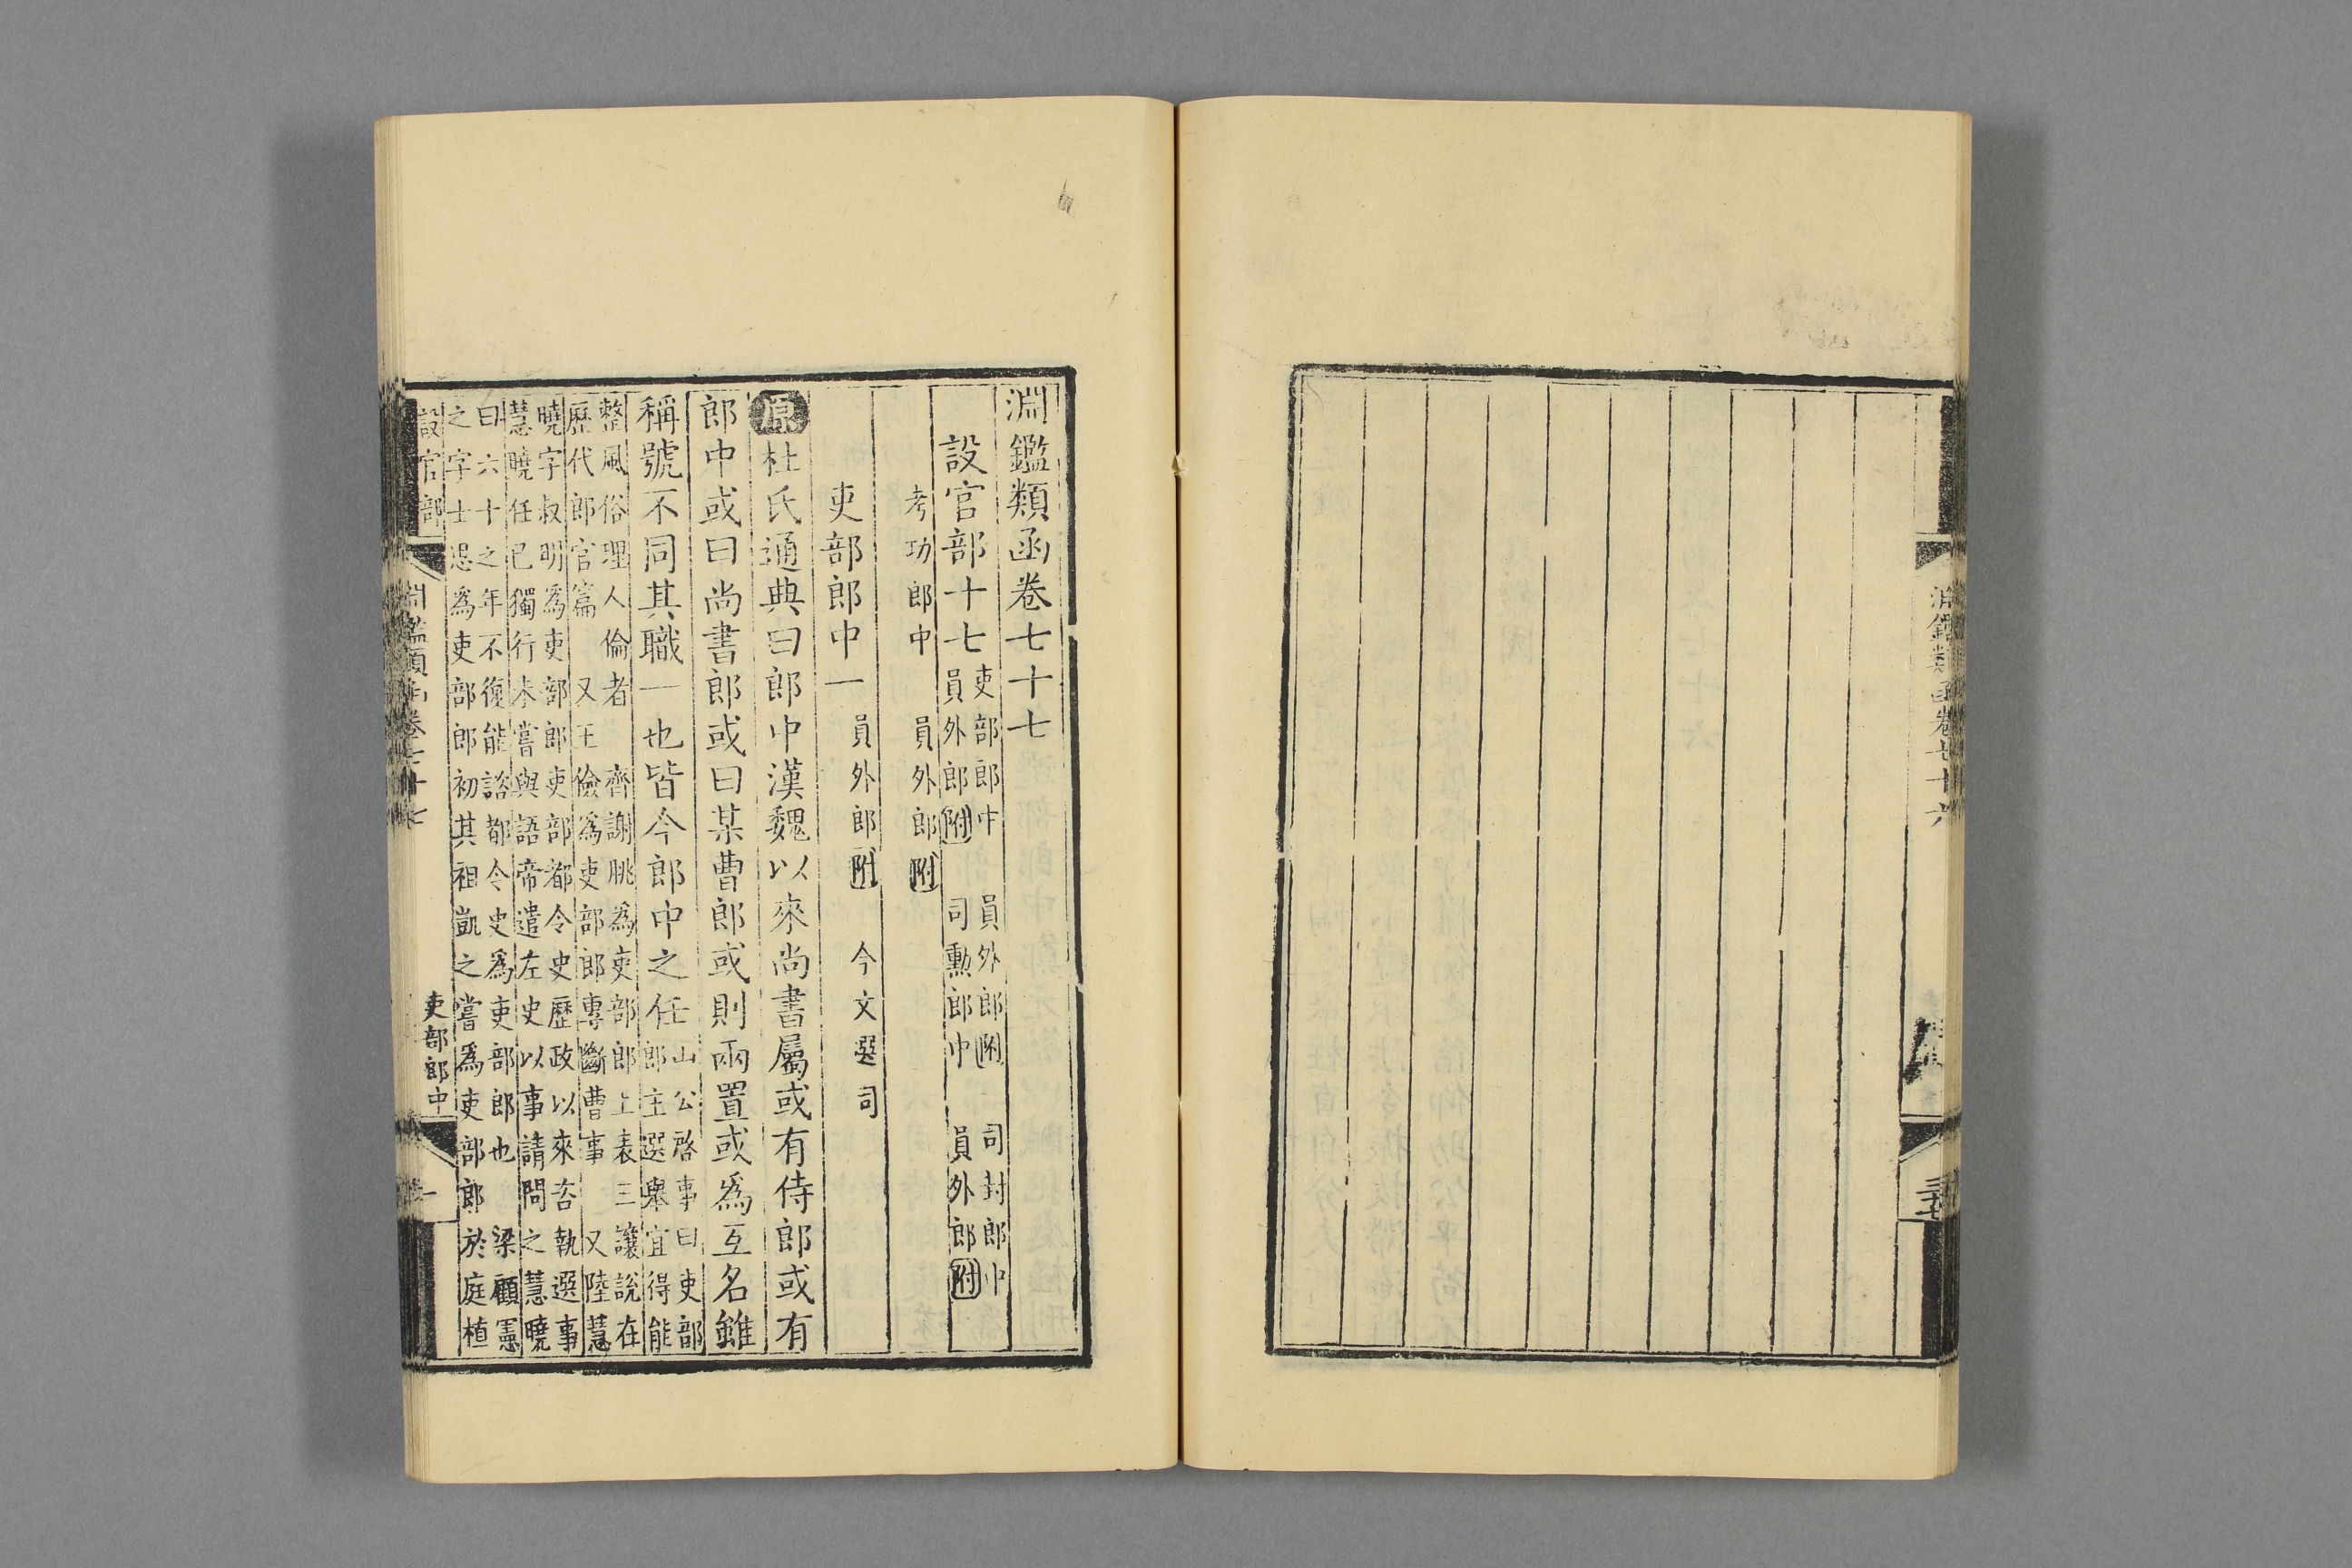 淵鑑類函卷七十六
淵鑑類函卷七十七
設官部十七
吏部郎中 員外郎附 司封郎中
員外郎附 司勳郎中 員外郎附
考功郎中 員外郎附
吏部郎中一 員外郎附 今文選司
原杜氏通典曰郎中漢魏以來尚書屬或有侍郎或有
郎中或曰尚書郎或曰某曹郎或則兩置或爲互名雖
稱號不同其職一也皆今郎中之任
山公啓事曰吏部
郎主選舉宜得能
整風俗理人倫者 齊謝朓爲吏部郎上表三讓說在
歷代郎官篇 又王儉爲吏部郎專斷曹事 又陸慧
曉字叔明爲吏部郎吏部都令史歷政以來咨執選事
慧曉任已獨行未嘗與語帝遣左史以事請問之慧曉
曰六十之年不復能諮都令史爲吏部郎也 梁顧憲
之字士思爲吏部郎初其祖凱之嘗爲吏部郎於庭植
設官部
淵鑑類函卷七十七
吏部郎中
一